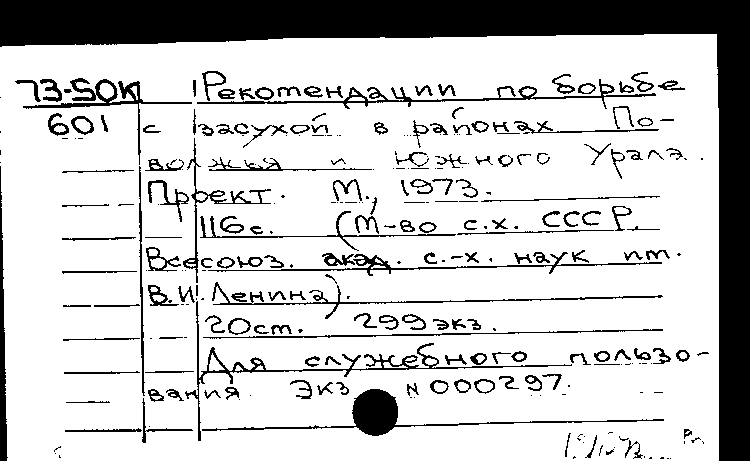 73-5ОК Рекомендации по борьбе
601 с засухой в районах По-
волжья и Южного Урала.
Проект. М., 1973.
116с. (М-во с.х. СССР.
Всесоюз. акад. с.-х. наук им.
В.И. Ленина).
20ст. 299 экз.
Для служебного пользо-
вания. Экз N 000297.